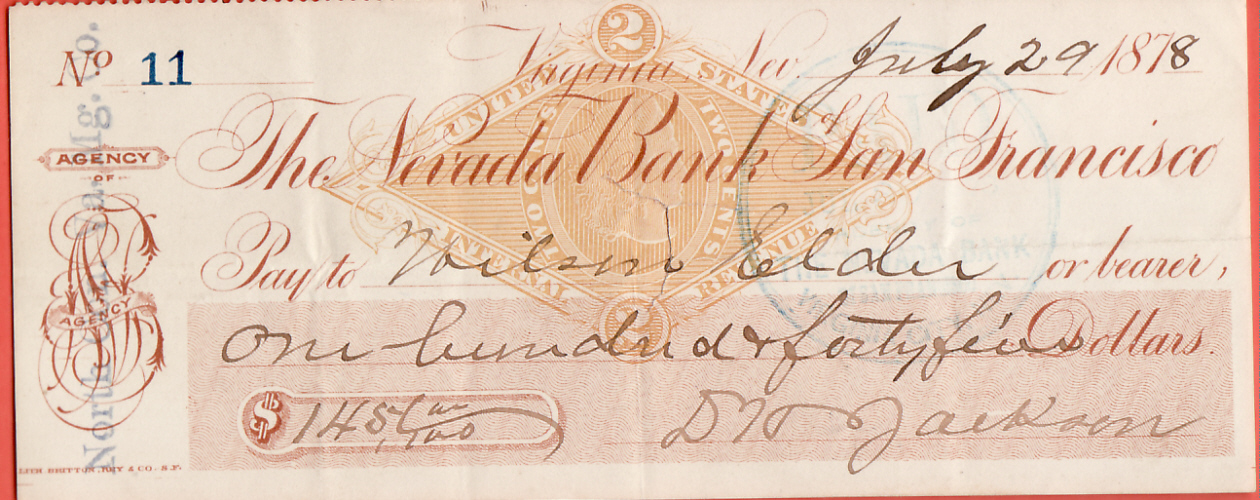 No 11
Virginia, Nev. July 29 1878
AGENCY
OF
The Nevada Bank of San Francisco
UNITED STATES
TWO CENTS
TWO CENTS
INTERNAL REVENUE
2
2
Pay to Wilson Elder or bearer,
AGENCY
one hundred & forty five Dollars.
$ 145 00/100
D W Jackson
LITH BRITTON, REY & CO. S.F.
North
Mg. Co.
BANK